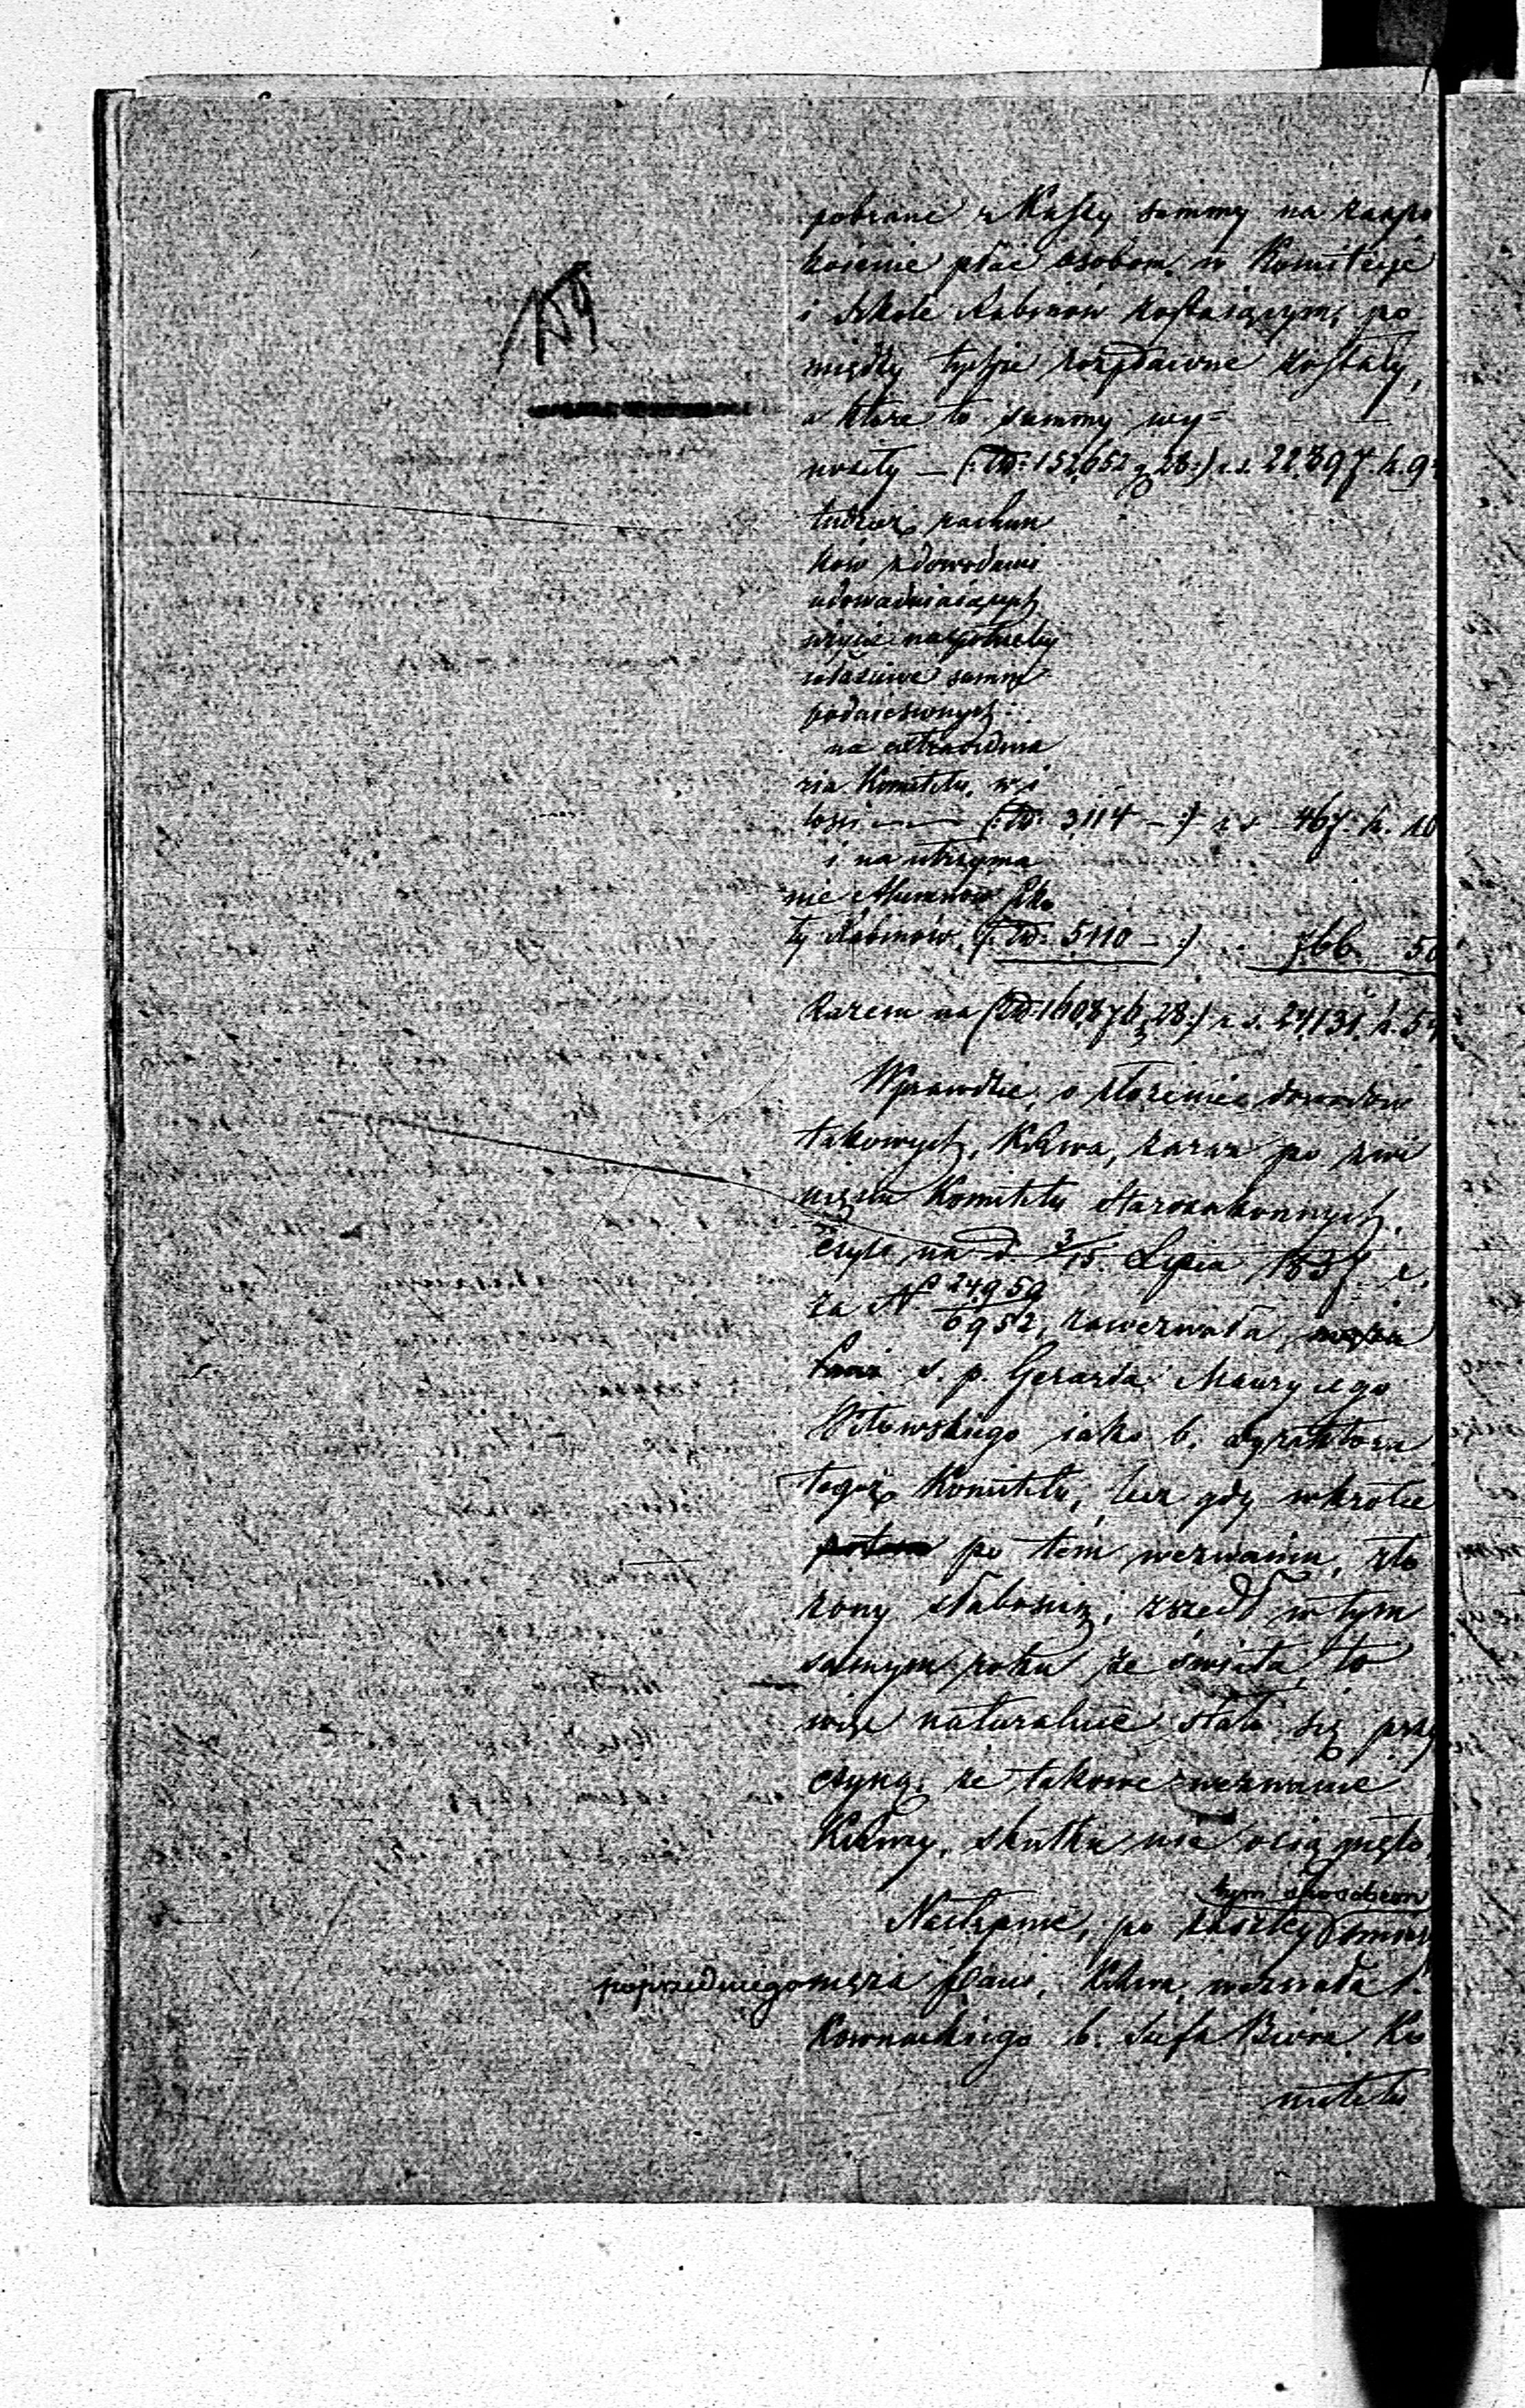 pobrane z Kassy summy na zaspo
kojenie płac osobom w Komitecie
i Szkole Rabinów zostaiącym, po
między tychże rozpłacone zostały,
a które to summy wy=
nosiły — (: Złp: 152,652 g 28:) r. s. 22,897. k. 9
tudzież rachun
ków z dowodami
udowadniaiących
użycie na potrzeby
właściwe summ
podniesionych:
na extraordina
ria Komitetu, w i
lości — (: Złp: 3114 – :) r. s. 467. k. 10
i na utrzyma
nie Alumnów Szko
ły Rabinów, (: Złp: 5110 – :) 766. 50
Razem na (: Złp: 160,876 g 28:) r. s. 24,131. k. 5
Wprawdzie, o złożenie dowodów
takowych, zaraz po zwi
nięciu Komitetu Starozakonnych,
czyli na d. 3/15. Lipca 1837. r.
za N° 24959/6952, zawezwała
ś. p. Gerarda Maurycego
Witowskiego iako b. Dyrektora
tegoż Komitetu, lecz gdy wkrótce
potem po tem wezwaniu, zło
żony słabością, zszedł w tym
samym roku ze świata, to
więc naturalnie stało się przy
czyną, że takowe wezwanie
skutku nie osiągnęło.
tym sposobem
Następnie, po zaszłey śmierci
poprzedniego męża Pani, wezwała P.
Kownackiego b. Szefa Biura Ko
mitetu